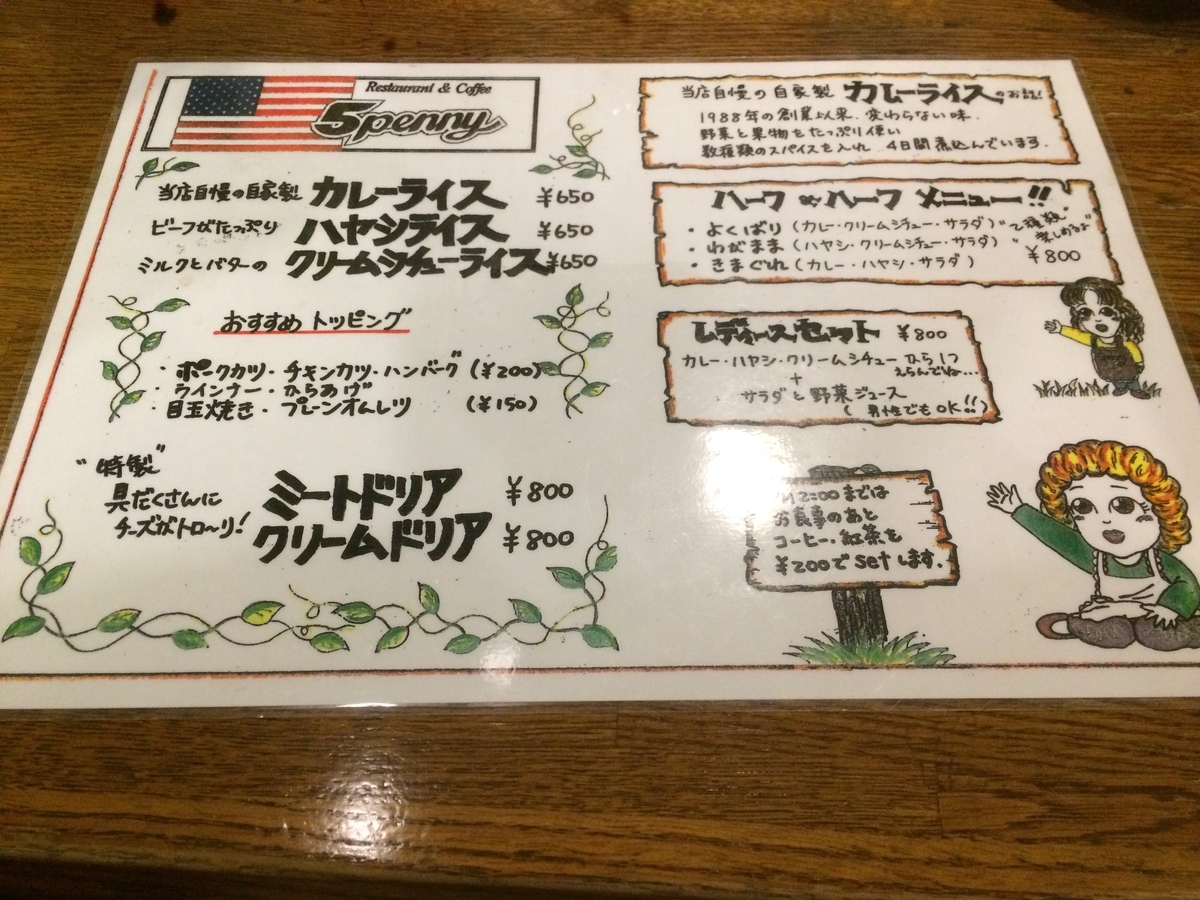 Restaurant & Coffee
5penny
当店自慢の自家製 カレーライス ¥650
ビーフがたっぷり ハヤシライス ¥650
ミルクとバターの クリームシチューライス ¥650
おすすめ トッピング
・ポークカツ・チキンカツ・ハンバーグ (¥200)
・ウインナー・からあげ
・目玉焼き・プレーンオムレツ (¥150)
"特製"
具だくさんに
チーズがトロ〜リ!
ミートドリア ¥800
クリームドリア ¥800
当店自慢の自家製 カレーライスのお話!
1988年の創業以来、変わらない味。
野菜と果物をたっぷり使い
数種類のスパイスを入れ 4日間煮込んでいます。
ハーフ & ハーフ メニュー!!
・よくばり (カレー・クリームシチュー・サラダ)
・わがまま (ハヤシ・クリームシチュー・サラダ)
・きまぐれ (カレー・ハヤシ・サラダ)
"2種類"
"楽しめるよ"
¥800
レディースセット ¥800
カレー・ハヤシ・クリームシチュー から1つ
えらんでね...
+
サラダと野菜ジュース
(男性でもOK!!)
2:00までは
お食事のあと
コーヒー・紅茶を
¥200でsetします.